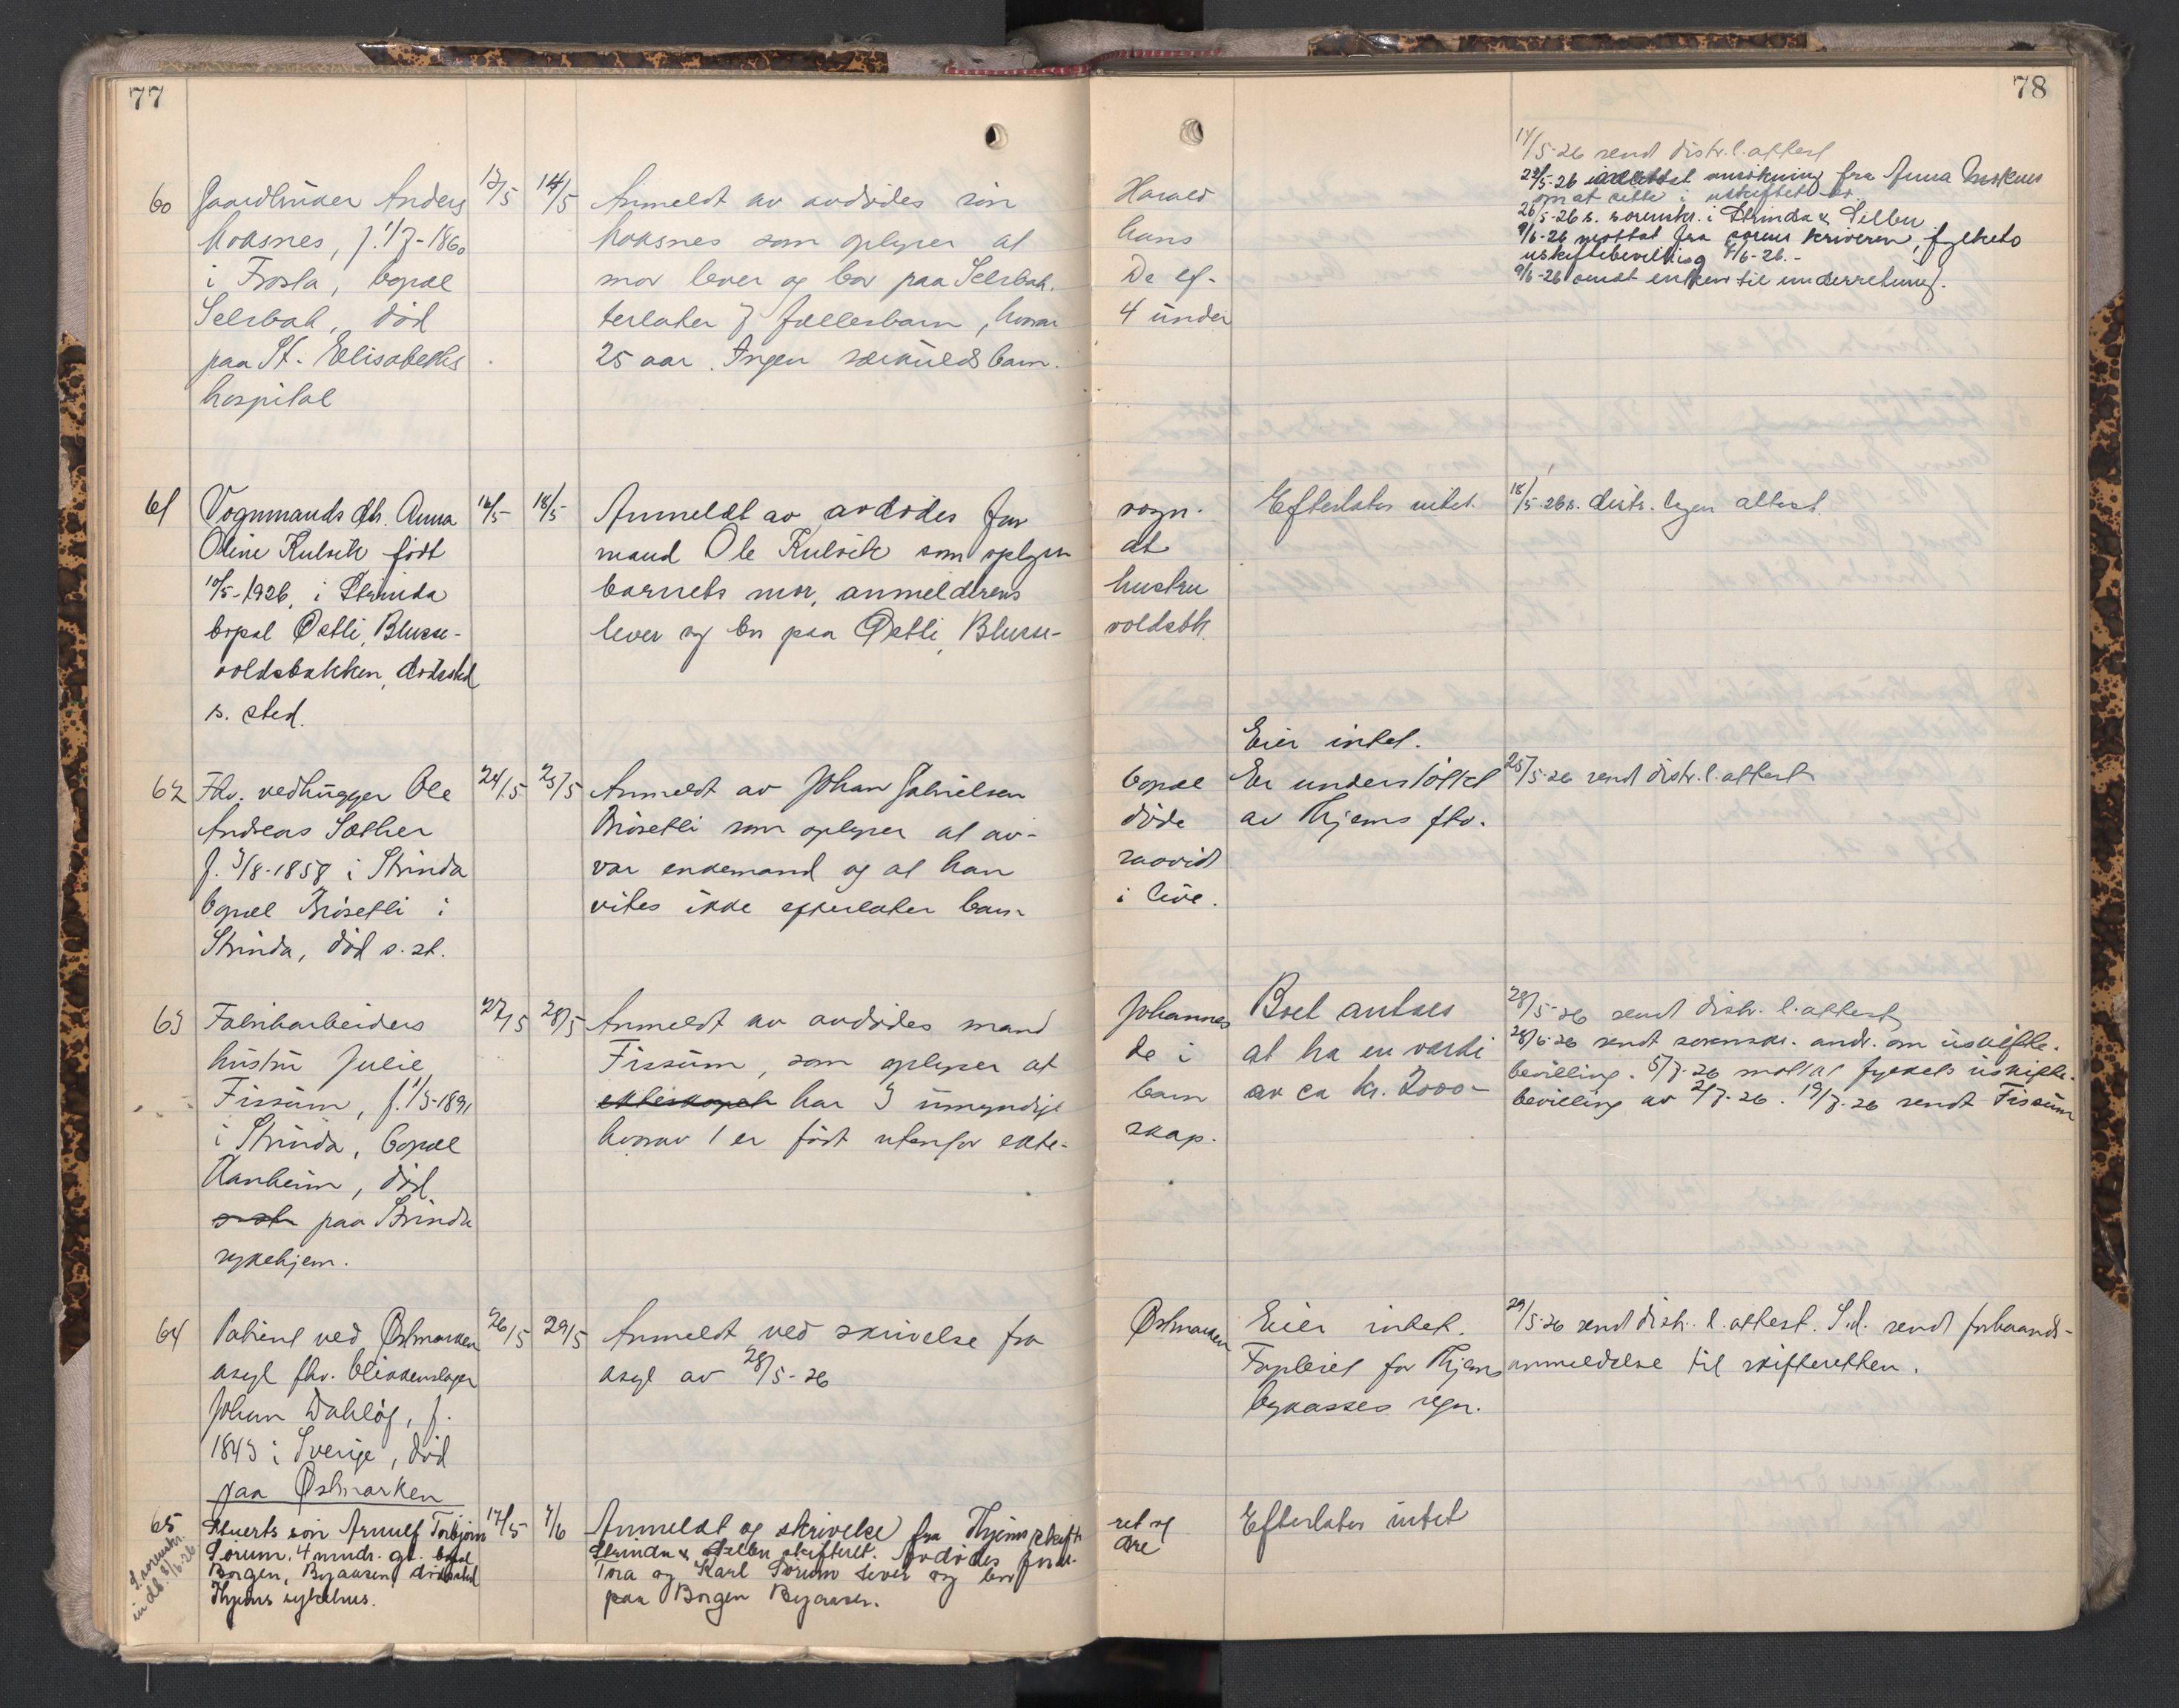 77
78
60 Gaardbruker Anders 12/5 14/5 Anmeldt av avdødes søn Harald
Moksnes, f. 1/7-1860 Moksnes som oplyser at hans
i Frosta, bopæl mor lever og bor paa Selsbak. De ef-
Selsbak, død terlater 7 fællesbarn, hvorav 4 under
paa St. Elisabeths 25 aar. Ingen særkuldsbarn.
hospital
14/5-26 sendt distr.l. attest
22/5-26 mottat ansökning fra Anna Moksnes
om at sitte i uskiftet bo.
26/5-26 s. sorenskr. i Strinda & Selbu
9/6-26 mottat fra sorenskriveren, fylkets
uskiftebevilling 8/6-26.-
9/6-26 sendt enken til underretning.
61 Vognmands dtr. Anna 16/5 18/5 Anmeldt av avdødes far vogn- Efterlater intet. 18/5-26 s. distr. legen attest
Oline Kulvik født mand Ole Kulvik som oplyser at
10/5-1926, i Strinda barnets mor, anmelderens hustru
bopæl Østli, Blusse- lever og bor paa Østli, Blusse- voldsbk.
voldsbakken, dødssted
s. sted.
Eier intet.
62 Fhv. vedhugger Ole 24/5 25/5 Anmeldt av Johan Gabrielsen bopæl Er understöttet 25/5-26 sendt distr.l. attest
Andreas Sæther Brösetli som oplyser at av- döde av Thjems fhv.
f. 3/8-1858 i Strinda var enkemand og at han saavidt
bopæl Brösetli i vites ikke efterlater barn i live.
Strinda, död s. st.
63 Fabrikarbeiders 27/5 28/5 Anmeldt av avdødes mand Johannes Boet antaes 28/5-26 sendt distr. l. attest
hustru Julie Fissum, som oplyser at de i at ha en værdi 28/6-26 sendt sorenskr. andr. om uskifte-
Fissum, f. 1/3-1891 ekteskapet har 3 umyndige barn av ca kr. 2000- bevilling. 5/7-26 mottat fylkets uskifte-
i Strinda, bopæl hvorav 1 er født utenfor ekte- skap. bevilling av 2/7-26. 19/7-26 sendt Fissum
Aanheim, död
s. st. paa Strinda
sykehjem.
64 Patient ved Østmarken 26/5 29/5 Anmeldt ved skrivelse fra Østmarken Eier intet. 29/5-26 sendt distr. l. attest. S.d. sendt forhaands-
asyl fhv. blikkenslager asyl av 28/5-26 Forpleiet for Thjems anmeldelse til skifteretten.
Johan Dahlöf, f. bykasses regn.
1843 i Sverige, død
paa Østmarken
65 Stuerts søn Arnulf Torbjørn 17/5 7/6 Anmeldt og skrivelse fra Thjems skifteret og Efterlater intet
Sørum, 4 mndr. gl. bopæl Strinda & Selbu skifteret. Avdødes foræl- dre
Borgen, Byaasen, dødssted Tora og Karl Sørum lever og bor
Thjems sykehus. paa Borgen Byaasen.